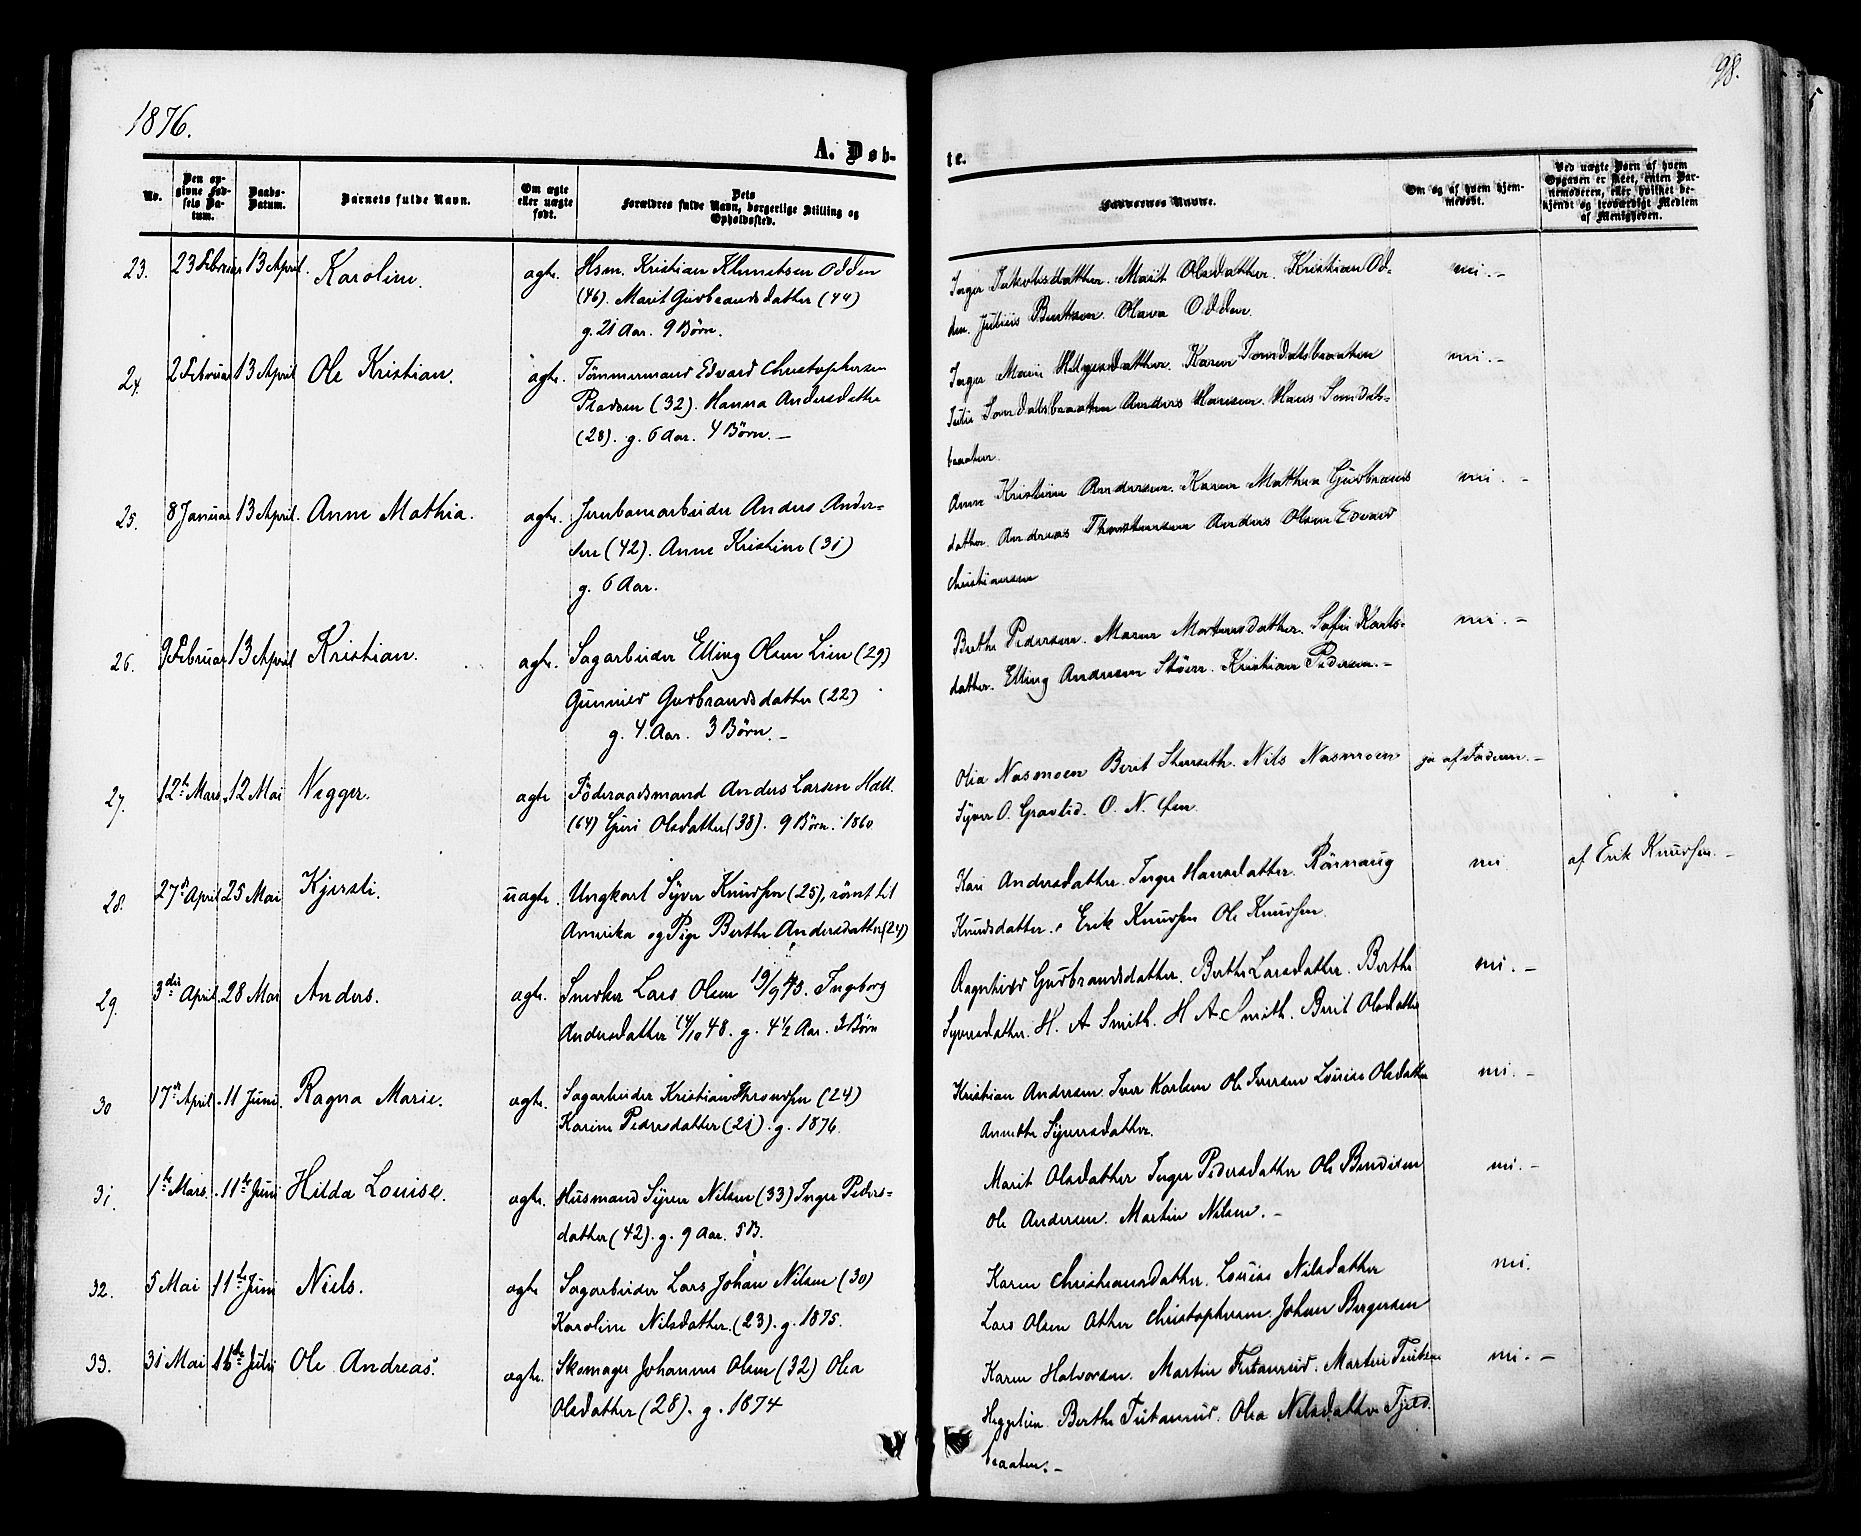 1876.
98.
A. Døb-
te.
No.
Den op-
givne Fød-
sels Da-
tum.
Daabs-
Datum.
Barnets fulde Navn.
Om ægte
eller uægte
født.
Dets
Forældres fulde Navn, borgerlige Stilling og
Opholdssted.
Faddernes Navne.
Om og af hvem hjem-
medøbt.
Ved uægte Børn af hvem
Opgaven er skeet, enten Bar-
nemoderen, eller hvilket be-
kjendt og troværdigt Medlem
af Menigheden.
23. 23 Februar 13 April. Karoline. ægte. Hsm. Kristian Klemetsen Odden
(46). Marit Gudbrandsdatter (44)
g. 21 Aar. 9 Børn.
Inger Jakobsdatter. Marit Olsdatter. Kristian Od-
den. Julius Berntsen. Olava Odden.
nei. -
24. 2 Februar 13 April Ole Kristian. ægte. Tømmermand Edvard Christophersen
(32). Hanna Andersdatter
(28). g. 6 Aar. 4 Børn. -
Inger Marie Helgesdatter. Karen Somdalsbraaten
Julie Somdalsbraaten Anders Hansen. Hans Somdals-
braaten.
nei. -
25. 8 Januar 13 April. Anne Mathia. ægte. Jernbanearbeider Anders Ander-
sen (42). Anne Kristine (31)
g. 6 Aar.
Anne Kristine Andersen. Karen Mathea Gudbrands
datter. Andreas Thorstensen Anders Olsen Edvard
Christiansen
nei. -
26. 9 Februar 13 April Kristian. ægte. Sagarbeider Elling Olsen Lien (29)
Gunnild Gudbrandsdatter (22)
g. 4. Aar. 3 Børn. -
Berthe Pedersen. Maren Mortensdatter. Sofie Karls-
datter. Elling Andersen Støen. Kristian Pedersen. -
nei. -
27. 12te Mars. 12 Mai Vegger. ægte Föderaadsmand Anders Larsen Hall
(64) Guri Olsdatter (38). 9 Børn. 1860
Olia Nasmoen Berit Nils Nasmoen
Syver O. Gravlid. O. N. Øen.
ja af Faderen. -
28. 27de April 25 Mai Kjersti. uægte. Ungkarl Syver Knudsen (25), rømt til
Amerika og Pige Berthe Andersdatter (24)
Kari Andersdatter. Inger Hansdatter. Rönnaug
Knudsdatter. Erik Knudsen Ole Knudsen.
nei
af Erik Knudsen. -
29. 3die April. 28 Mai Anders. ægte. Snedker Lars Olsen 19/9 43. Ingeborg
Andersdatter 14/10 48. g. 4½ Aar. 3 Børn
Ragnhild Gudbrandsdatter. Berthe Larsdatter. Berthe
Syversdatter. H. A Smith. H A. Smith. Berit Olsdatter
nei. -
30 17de April. 11 Juni. Ragna Marie. ægte. Sagarbeider Kristian Throndsen (24)
Karine Pedersdatter (21). g. 1876.
Kristian Andersen. Iver Karlsen Ole Iversen Louise Olsdatter
Annette Syversdatter.
nei. -
31. 1te Mars. 11te Juni Hilda Louise. ægte. Husmand Syver Nilsen (33) Inger Peders-
datter (42). g. 9 Aar. 5 B.
Marit Olsdatter Inger Pedersdatter Ole Bendiksen
Ole Andersen. Martin Nilsen. -
nei. -
32. 5 Mai 11te Juni Niels. ægte Sagarbeider Lars Johan Nilsen (30)
Karoline Nilsdatter. (23). g. 1875.
Karen Christiansdatter. Louise Nilsdatter
Lars Olsen Christophersen. Johan Bergersen
nei.
33. 31 Mai 16de Juli Ole Andreas. ægte. Skomager Johannes Olsen (32) Olea
Olsdatter (28). g. 1874
Karen Halvorsen. Martin Martin
Berthe Olea Nilsdatter Fjeld
braaten. -
nei. -